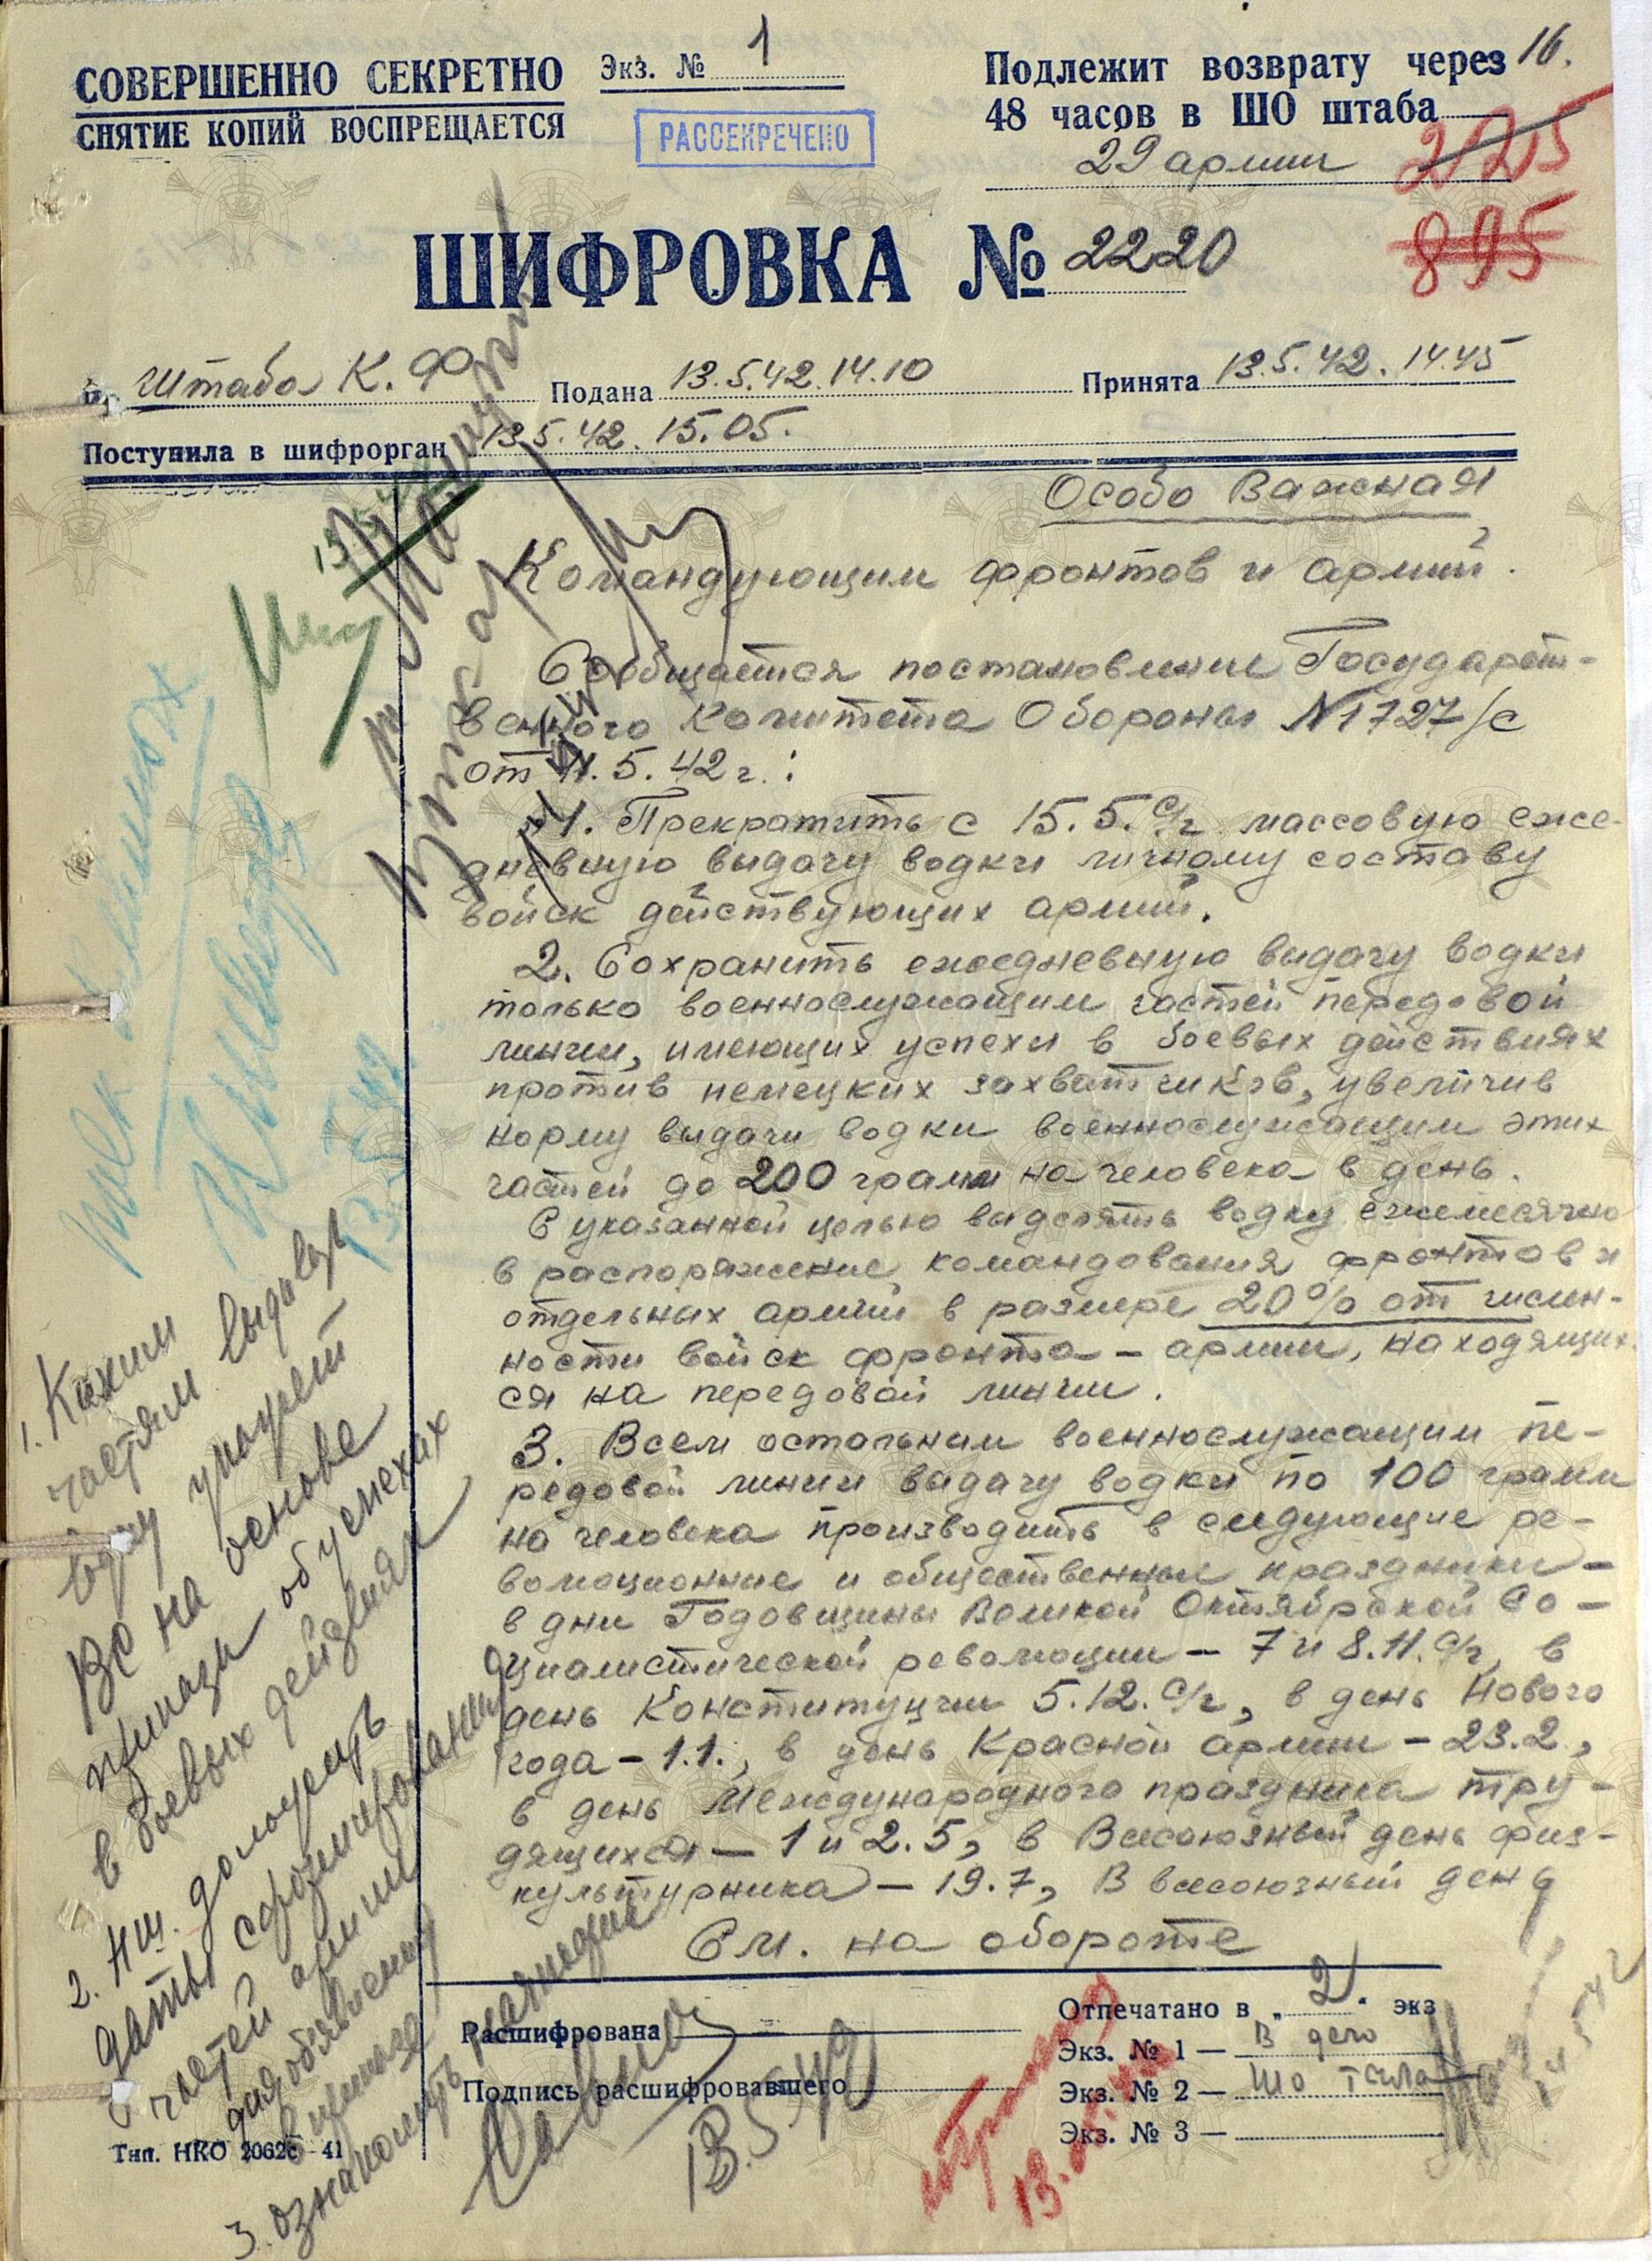 СОВЕРШЕННО СЕКРЕТНО
СНЯТИЕ КОПИЙ ВОСПРЕЩАЕТСЯ
Экз. № 1
РАССЕКРЕЧЕНО
Подлежит возврату через 16.
48 часов в ШО штаба
29 армии
225
895
ШИФРОВКА № 2220
Штаба К. Ф. Подана 13.5.42. 14.10 Принята 13.5.42. 14.45
Поступила в шифрорган 13.5.42. 15.05.
Особо Важная
Командующим фронтов и армий.
Сообщается постановление Государст-
венного Комитета Обороны №1727/с
от 11.5.42 г.:
"1. Прекратить с 15.5. с/г массовую еже-
дневную выдачу водки личному составу
войск действующих армий.
2. Сохранить ежедневную выдачу водки
только военнослужащим частей передовой
линии, имеющих успехи в боевых действиях
против немецких захватчиков, увеличив
норму выдачи водки военнослужащим этих
частей до 200 грамм на человека в день.
С указанной целью выделять водку ежемесячно
в распоряжение командования фронтов и
отдельных армий в размере 20% от числен-
ности войск фронта – армии, находящих-
ся на передовой линии.
3. Всем остальным военнослужащим пе-
редовой линии выдачу водки по 100 грамм
на человека производить в следующие ре-
волюционные и общественные праздники –
в дни Годовщины Великой Октябрьской Со-
циалистической революции – 7 и 8.11. с/г, в
день Конституции 5.12. с/г, в день Нового
года – 1.1., в день Красной армии – 23.2,
в день Международного праздника тру-
дящихся – 1 и 2.5, в Всесоюзный день физ-
культурника – 19.7, в всесоюзный день
См. на обороте
1. Каким
частям выдавать
водку укажет
ВС на основе
приказа об успехах
в боевых действиях
2. НШ. доложить
даты сформирования
частей армии
для объявления
в приказе
3. ознакомить
Расшифрована
Подпись расшифровавшего
13.5.42
Отпечатано в „2" экз
Экз. № 1 — В дело
Экз. № 2 — ШО тыла
Экз. № 3 —
Тип. НКО 2062с—41